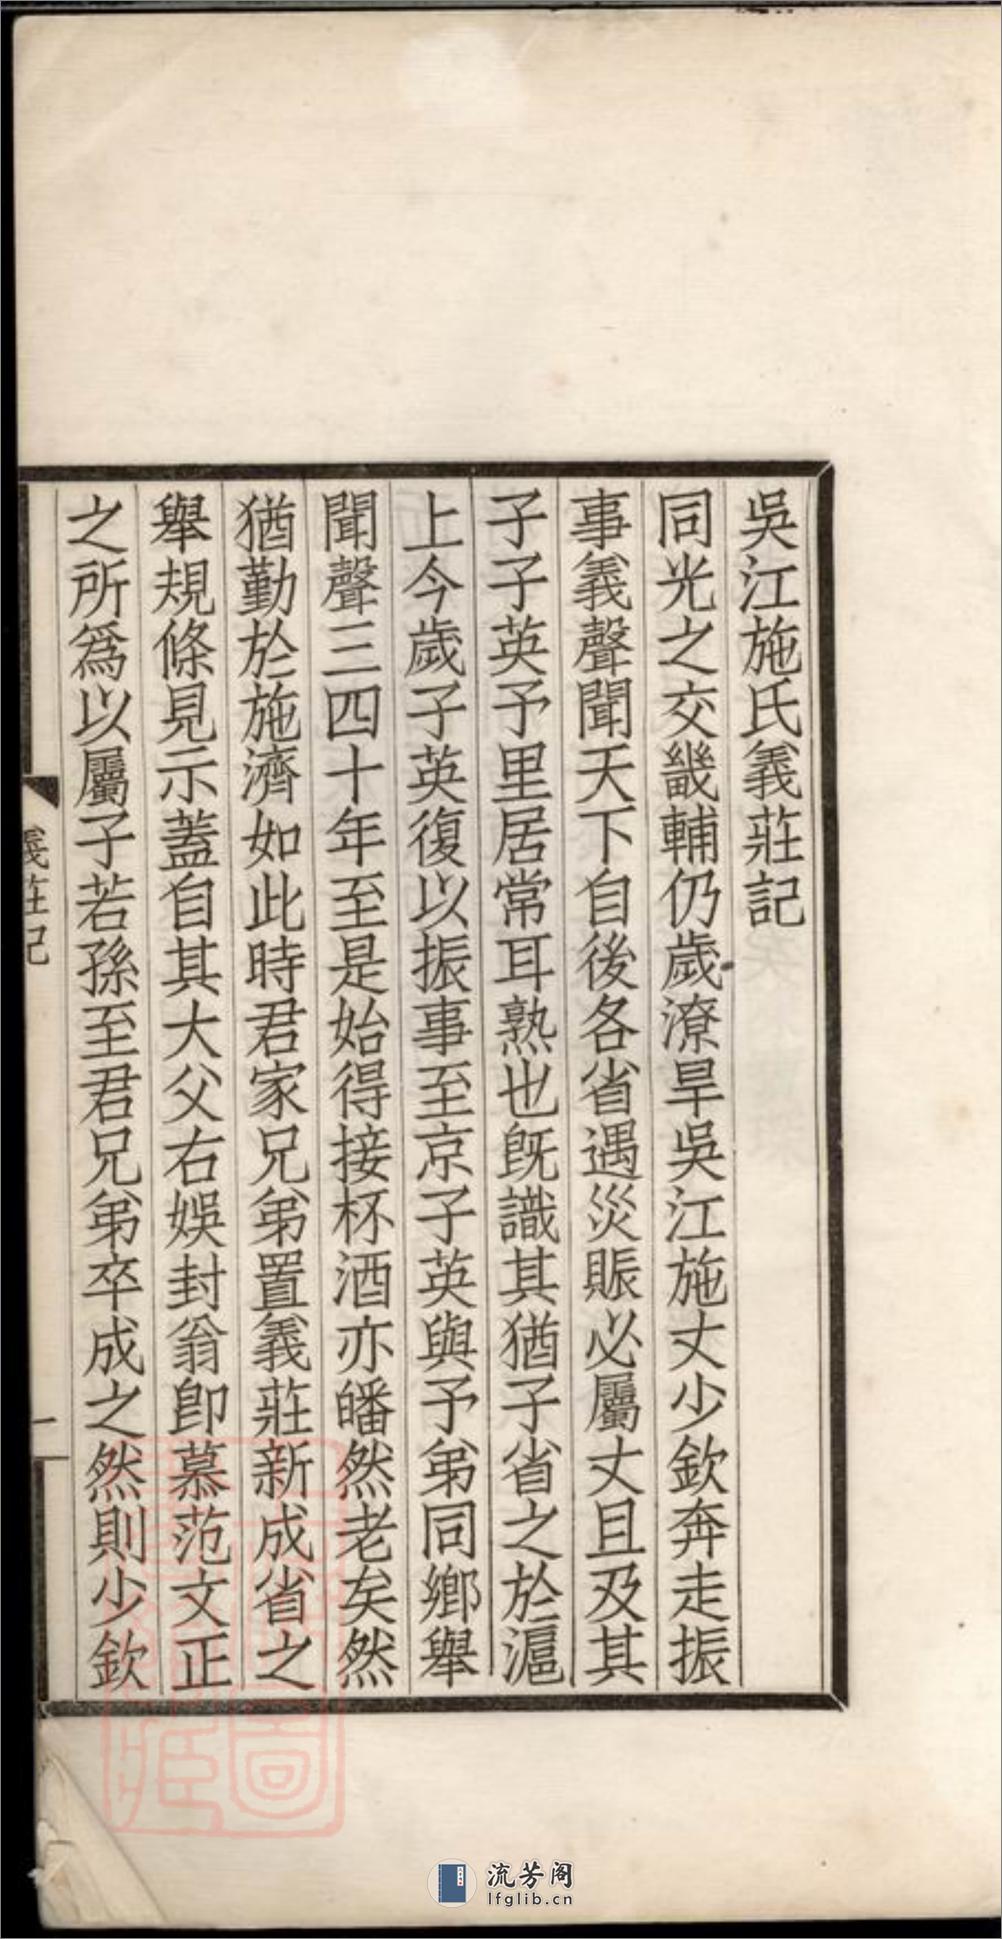 吳江施氏義莊記
同光之交畿輔仍歲潦旱吳江施丈少欽奔走振
事義聲聞天下自後各省遇災賑必屬丈且及其
子子英予里居常耳熟也旣識其猶子省之於滬
上今歲子英復以振事至京子英與予弟同鄉舉
聞聲三四十年至是始得接杯酒亦皤然老矣然
猶勤於施濟如此時君家兄弟置義莊新成省之
舉規條見示蓋自其大父右娛封翁卽慕范文正
之所爲以屬子若孫至君兄弟卒成之然則少欽
義莊記
一
流芳阁
lfglib.cn